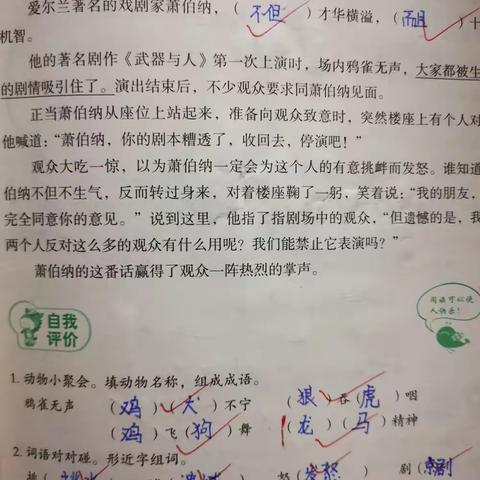 爱尔兰著名的戏剧家萧伯纳，（不但）才华横溢，（而且）十
机智。
他的著名剧作《武器与人》第一次上演时，场内鸦雀无声，大家都被生
的剧情吸引住了。演出结束后，不少观众要求同萧伯纳见面。
正当萧伯纳从座位上站起来，准备向观众致意时，突然楼座上有个人对
他喊道：“萧伯纳，你的剧本糟透了，收回去，停演吧！”
观众大吃一惊，以为萧伯纳一定会为这个人的有意挑衅而发怒。谁知道
伯纳不但不生气，反而转过身来，对着楼座鞠了一躬，笑着说：“我的朋友，
完全同意你的意见。”说到这里，他指了指剧场中的观众，“但遗憾的是，我
两个人反对这么多的观众有什么用呢？我们能禁止它表演吗？”
萧伯纳的这番话赢得了观众一阵热烈的掌声。
阅读可以使
人快乐！
自我
评价
1. 动物小聚会。填动物名称，组成成语。
鸦雀无声 （鸡）（犬）不宁 （狼）吞（虎）咽
（鸡）飞（狗）舞 （龙）（马）精神
2. 词语对对碰。形近字组词。
怒（发怒） 剧（京剧）